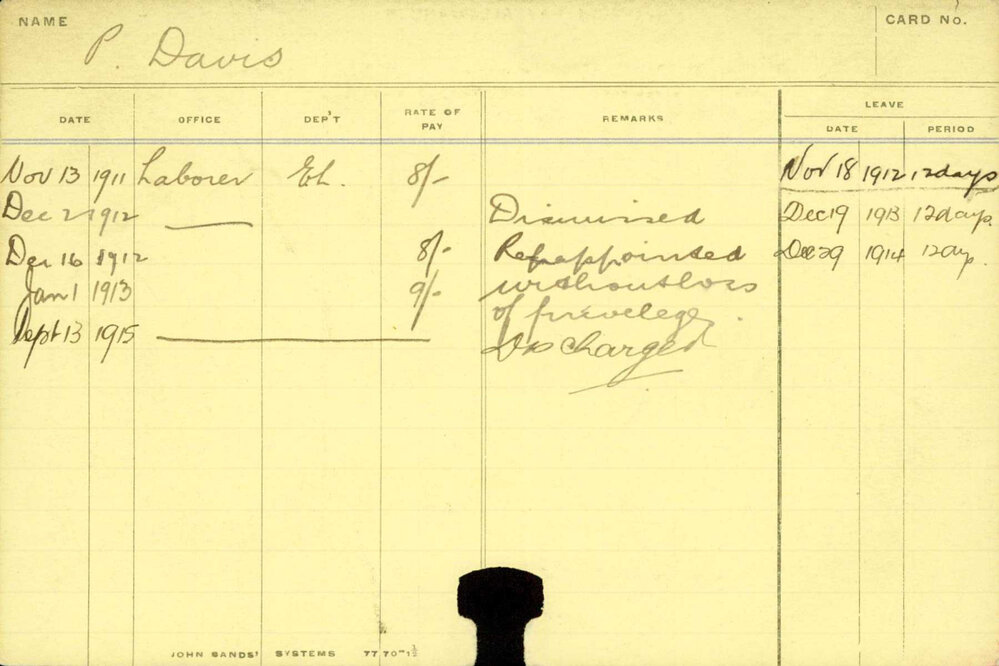 NAME P. Davis CARD No.
DATE OFFICE DEP'T RATE OF PAY REMARKS LEAVE
DATE PERIOD
Nov 13 1911 Laborer El. 8/- Nov 18 1912 12 days
Dec 2 1912 Dismissed Dec 19 1913 12 days.
Dec 16 1912 8/- Reappointed Dec 29 1914 12 day.
Jan 1 1913 9/- without loss
of privelege.
Sept 13 1915 Discharged
JOHN SANDS' SYSTEMS 77 70